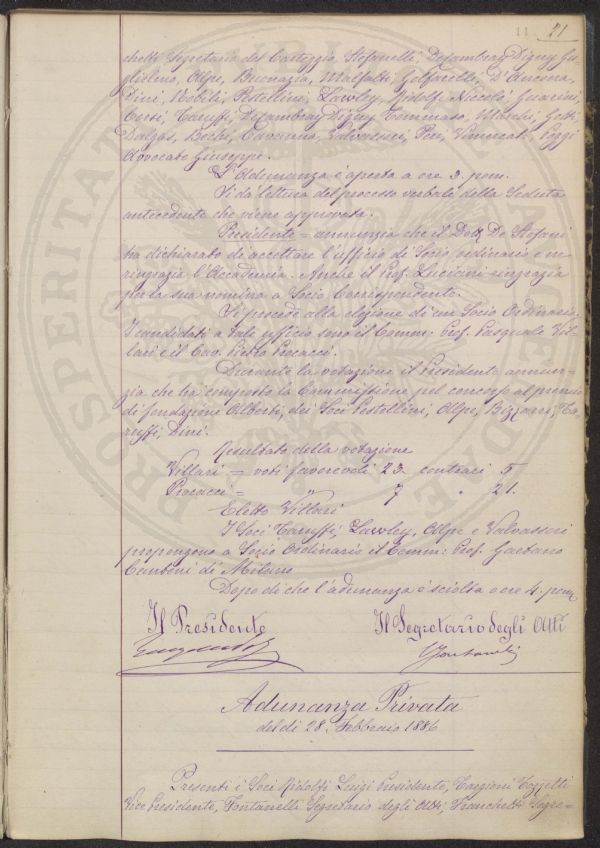 11 21
chetti Segretario del Carteggio, Stefanelli, Desambray Digny Gu-
glielmo, Alpe, Buonazia, Malfatti, Golfarelli, D'Ancona,
Dini, Nobili, Pestellini, Lawley, Ridolfi Niccolò, Guarini,
Corsi, Caruffi, Desambray Digny Tommaso, Marchi, Gotti,
Dalgas, Bechi, Caruana, Valvassori, Pozzi
Avvocato Giuseppe.
L'Adunanza è aperta a ore 3. pom.
Si dà lettura del processo verbale della Seduta
antecedente che viene approvato.
Presidente = annunzia che il Dott. De Stefani
ha dichiarato di accettare l'ufficio di Socio ordinario e
ringrazia l'Accademia. Anche il Prof. Luciani ringrazia
per la sua nomina a Socio Corrispondente.
Si procede alla elezione di un Socio Ordinario.
I candidati a tale ufficio sono il Comm: Prof. Pasquale Vil-
lari e il Cav. Procacci.
Durante la votazione il Presidente annun-
zia che ha composto la Commissione pel concorso al premio
di fondazione Alberti, dei Soci Pestellini, Alpe, Bizzarri, Ca-
ruffi, Dini.
Resultato della votazione
Villari = voti favorevoli 23 contrari 5
Procacci = " 7 " 21.
Eletto Villari
I Soci Caruffi, Lawley, Alpe e Valvassori
propongono a Socio Ordinario il Comm: Prof. Gaetano
Cantoni di Milano
Dopo di che l'adunanza è sciolta a ore 4. pom.
Il Presidente Il Segretario degli Atti
Fontanelli
Adunanza Privata
del dì 28. Febbraio 1886
Presenti i Soci Ridolfi Luigi Presidente, Targioni Tozzetti
Vice Presidente, Fontanelli Segretario degli Atti, Franchetti Segre=